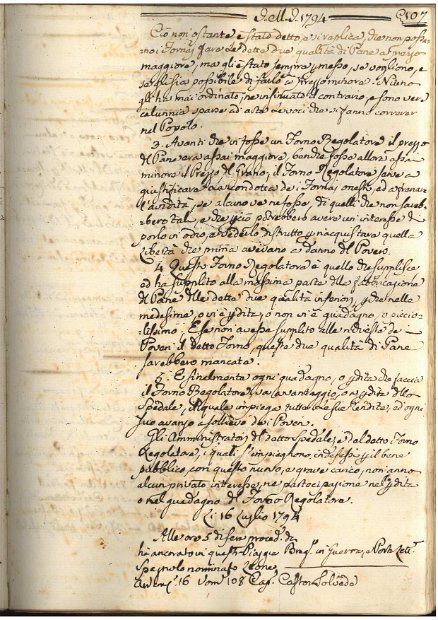 Dell' A. 1794 107
Ciò non ostante è stato detto, e si replica, che non posso
no i Fornaj fare le dette due qualità di Pane al prezzo
maggiore, ma gli è stato sempre permesso, se vogliono, e
possibile di farlo a
gli ha mai ordinato, ne insinuato il contrario, e sono vere
calunnie sparse ad arte le voci che si fanno correre
nel Popolo.
3. Avanti che vi fosse un Forno Regolatore il prezzo
del Pane era assai maggiore, benche fosse allora assai
minore il Prezzo del Grano, il Forno Regolatore serve a
giustificare la condotta de' Fornaj onesti, ed a frenare
l'avidità, se alcuno ve ne fosse, di quelli che non sareb
bero tali, e che perciò potrebbero avere un interesse di
porlo in odio, e vederlo distrutto per riacquistare quella
libertà che prima avevano a danno de' Poveri.
4. Questo Forno Regolatore è quello che supplisce
ed ha supplito alla massima parte della fabbricazione
di Pane delle dette due qualità inferiori, e che nelle
medesime, o vi è perdita, o non vi è guadagno, o piccio-
lissimo. E se non avesse supplito alle richieste de'
Poveri il detto Forno, queste due qualità di Pane
sarebbero mancate.
5. E finalmente ogni guadagno, o perdita che faccia
il Forno Regolatore, va a vantaggio, o perdita dello
Spedale, il quale impiega tutte le sue Rendite, ed ogni
suo avanzo a sollievo de' Poveri.
Gli Amministratori del detto Spedale, e del detto Forno
Regolatore, i quali s'impiegano, indefessi per il bene
pubblico, con questo nuovo, e grave carico, non anno
alcun privato interesse, ne partecipazione nella perdita
o nel guadagno del Forno Regolatore.
Li 16 Luglio 1794
Alle ore 5 di sera
ha ancorato in questa Piaggia in Guerra, e
Spagnolo nominato
16 Uom. 108 Cap.